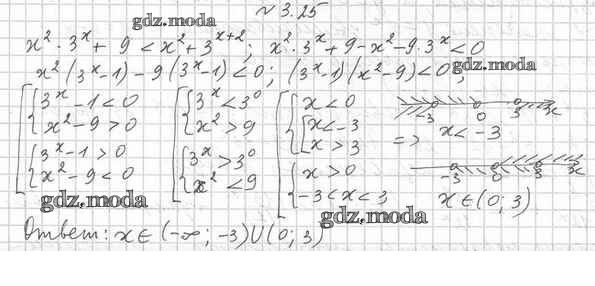 № 3.25
gdz.moda
x² · 3ˣ + 9 < x² + 3ˣ⁺²; x² · 3ˣ + 9 - x² - 9 · 3ˣ < 0
x² (3ˣ - 1) - 9 (3ˣ - 1) < 0; (3ˣ - 1)(x² - 9) < 0;
gdz.moda
[ { 3ˣ - 1 < 0 [ { 3ˣ < 3⁰ [ { x < 0 -3 0 3 x
x² - 9 > 0 x² > 9 [ x < -3 => x < -3
x > 3
{ 3ˣ - 1 > 0 { 3ˣ > 3⁰ { x > 0 -3 0 3 x
x² - 9 < 0 x² < 9 -3 < x < 3 x ∈ (0; 3)
gdz.moda gdz.moda
Ответ: x ∈ (-∞; -3) ∪ (0; 3)